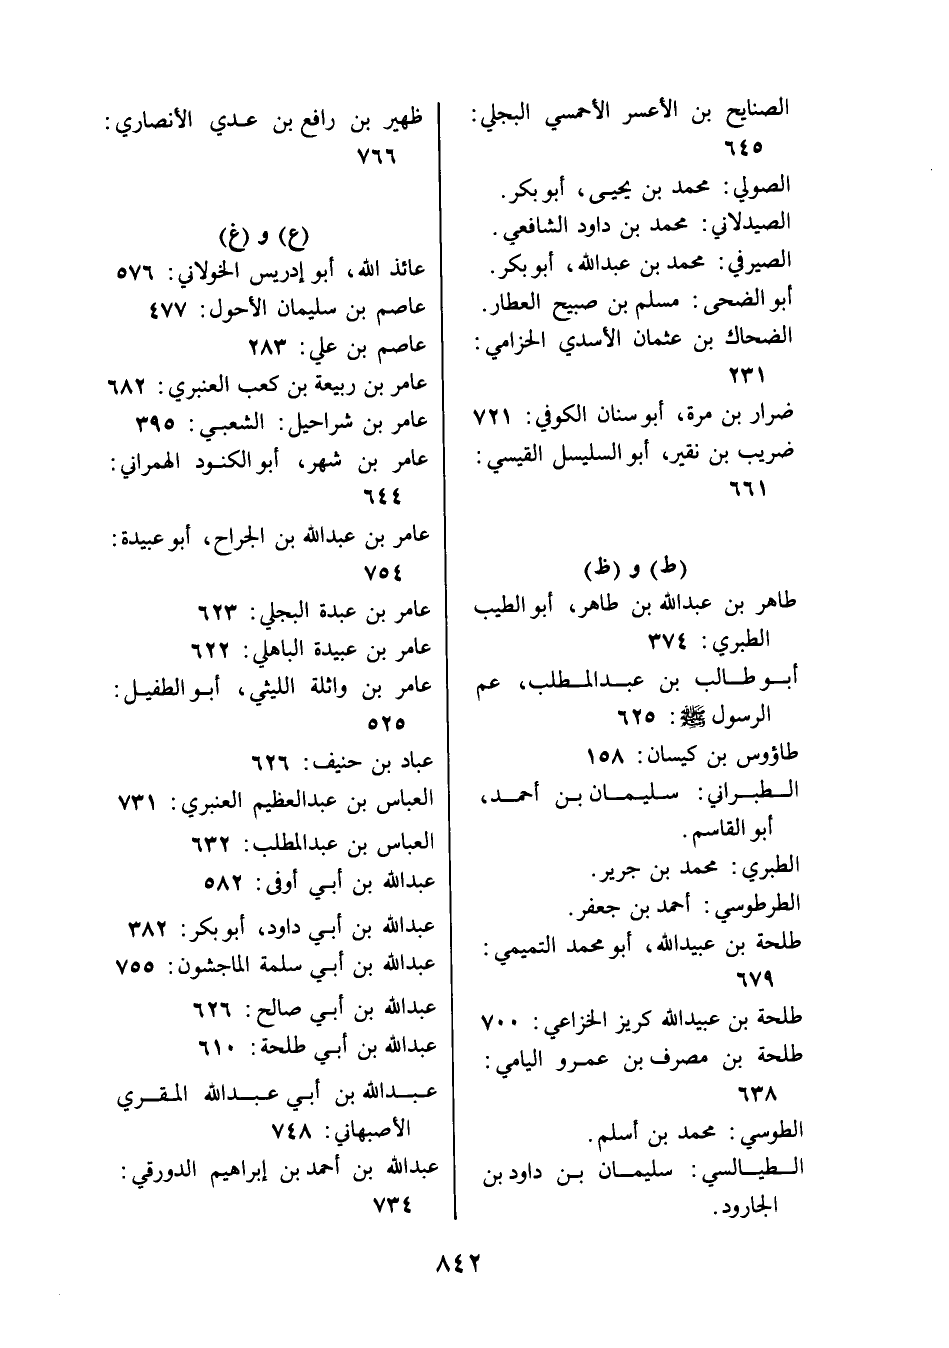 الصنايح بن الأعسر الأحمسي البجلي:
٦٤٥
الصولي: محمد بن يحيى، أبو بكر.
الصيدلاني: محمد بن داود الشافعي.
الصيرفي: محمد بن عبدالله، أبو بكر.
أبو الضحى: مسلم بن صبيح العطار.
الضحاك بن عثمان الأسدي الحزامي:
٢٣١
ضرار بن مرة، أبو سنان الكوفي: ٧٢١
ضريب بن نقير، أبو السليسل القيسي:
٦٦١
(ط) و (ظ)
طاهر بن عبدالله بن طاهر، أبو الطيب
الطبري: ٣٧٤
أبو طالب بن عبدالمطلب، عم
الرسول ﷺ: ٦٢٥
طاؤوس بن كيسان: ١٥٨
الطبراني: سليمان بن أحمد،
أبو القاسم.
الطبري: محمد بن جرير.
الطرطوسي: أحمد بن جعفر.
طلحة بن عبيدالله، أبو محمد التميمي:
٦٧٩
طلحة بن عبيدالله كريز الخزاعي: ٧٠٠
طلحة بن مصرف بن عمرو اليامي:
٦٣٨
الطوسي: محمد بن أسلم.
الطيالسي: سليمان بن داود بن
الجارود.
ظهير بن رافع بن عدي الأنصاري:
٧٦٦
(ع) و (غ)
عائذ الله، أبو إدريس الخولاني: ٥٧٦
عاصم بن سليمان الأحول: ٤٧٧
عاصم بن علي: ٢٨٣
عامر بن ربيعة بن كعب العنبري: ٦٨٢
عامر بن شراحيل: الشعبي: ٣٩٥
عامر بن شهر، أبو الكنود الهمراني:
٦٤٤
عامر بن عبدالله بن الجراح، أبو عبيدة:
٧٥٤
عامر بن عبدة البجلي: ٦٢٣
عامر بن عبيدة الباهلي: ٦٢٢
عامر بن واثلة الليثي، أبو الطفيل:
٥٢٥
عباد بن حنيف: ٦٢٦
العباس بن عبدالعظيم العنبري: ٧٣١
العباس بن عبدالمطلب: ٦٣٢
عبدالله بن أبي أوفى: ٥٨٢
عبدالله بن أبي داود، أبو بكر: ٣٨٢
عبدالله بن أبي سلمة الماجشون: ٧٥٥
عبدالله بن أبي صالح: ٦٢٦
عبدالله بن أبي طلحة: ٦١٠
عبدالله بن أبي عبدالله المقري
الأصبهاني: ٧٤٨
عبدالله بن أحمد بن إبراهيم الدورقي:
٧٣٤
٨٤٢